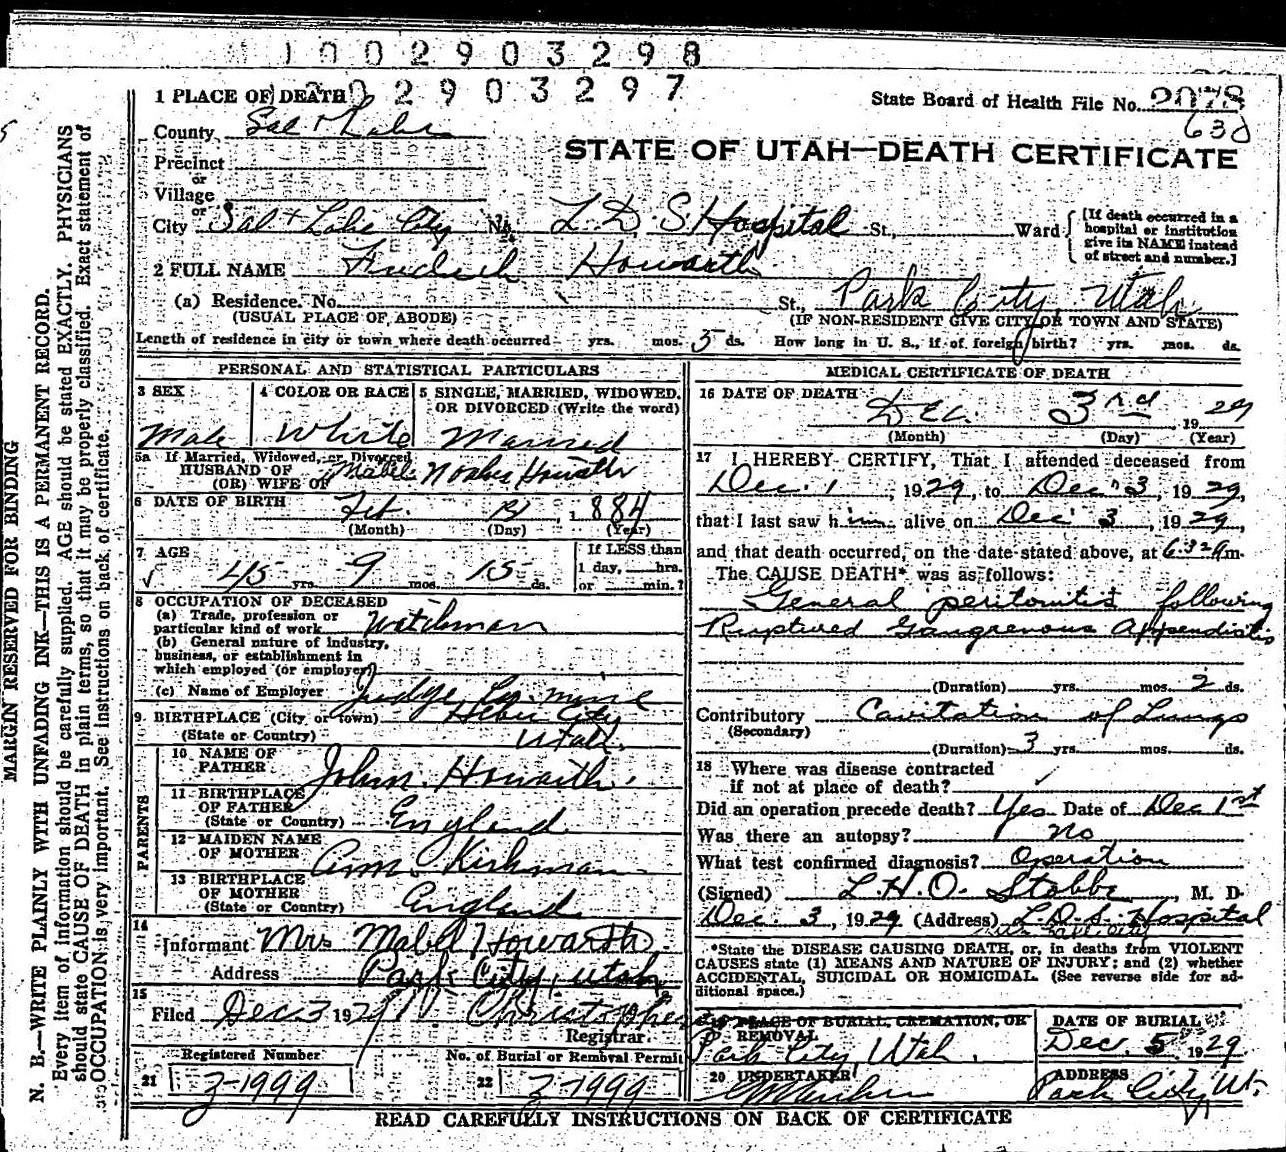 1002903298
1002903297
1 PLACE OF DEATH
State Board of Health File No. 2078
630
County Salt Lake
STATE OF UTAH—DEATH CERTIFICATE
Precinct
or
Village
or
City Salt Lake City No. L. D. S. Hospital St., Ward
[If death occurred in a hospital or institution give its NAME instead of street and number.]
2 FULL NAME Fredrick Howarth
(a) Residence. No. St., Park City, Utah
(USUAL PLACE OF ABODE) (IF NON-RESIDENT GIVE CITY OR TOWN AND STATE)
Length of residence in city or town where death occurred yrs. mos. 5 ds. How long in U. S., if of foreign birth? yrs. mos. ds.
PERSONAL AND STATISTICAL PARTICULARS
3 SEX Male
4 COLOR OR RACE White
5 SINGLE, MARRIED, WIDOWED, OR DIVORCED (Write the word) Married
5a If Married, Widowed, or Divorced
HUSBAND OF Mabel Noakes Howarth
(OR) WIFE OF
6 DATE OF BIRTH Feb. 1884
(Month) (Day) (Year)
7 AGE 45 yrs. 9 mos. 15 ds.
If LESS than 1 day, hrs. or min.?
8 OCCUPATION OF DECEASED
(a) Trade, profession or particular kind of work Watchman
(b) General nature of industry, business, or establishment in which employed (or employer)
(c) Name of Employer Judge Mine
9 BIRTHPLACE (City or town) Heber City
(State or Country) Utah.
PARENTS
10 NAME OF FATHER John Howarth.
11 BIRTHPLACE OF FATHER
(State or Country) England
12 MAIDEN NAME OF MOTHER Ann Kirkman
13 BIRTHPLACE OF MOTHER
(State or Country) England
14
Informant Mrs Mabel Howarth
Address Park City, Utah
15
Filed Dec 3 1929 Christopherson
Registrar.
Registered Number No. of Burial or Removal Permit
21 3-1999 22 3-1999
MEDICAL CERTIFICATE OF DEATH
16 DATE OF DEATH
Dec. 3rd 1929
(Month) (Day) (Year)
17 I HEREBY CERTIFY, That I attended deceased from
Dec. 1, 1929, to Dec. 3, 1929,
that I last saw him alive on Dec 3, 1929,
and that death occurred, on the date stated above, at 6:32 a m.
The CAUSE DEATH* was as follows:
General peritonitis following
Ruptured Gangrenous Appendicitis
(Duration) yrs. mos. 2 ds.
Contributory Cavitation of Lungs
(Secondary)
(Duration) 3 yrs. mos. ds.
18 Where was disease contracted
if not at place of death?
Did an operation precede death? Yes Date of Dec 1st
Was there an autopsy? no
What test confirmed diagnosis? Operation
(Signed) L. H. O. Stobbe, M. D.
Dec. 3, 1929 (Address) L. D. S. Hospital
Salt Lake City
*State the DISEASE CAUSING DEATH, or, in deaths from VIOLENT
CAUSES state (1) MEANS AND NATURE OF INJURY; and (2) whether
ACCIDENTAL, SUICIDAL OR HOMICIDAL. (See reverse side for ad-
ditional space.)
19 PLACE OF BURIAL, CREMATION, OR REMOVAL
Park City, Utah.
DATE OF BURIAL
Dec. 5 1929
20 UNDERTAKER
ADDRESS
Park City Ut.
READ CAREFULLY INSTRUCTIONS ON BACK OF CERTIFICATE
MARGIN RESERVED FOR BINDING
N. B.—WRITE PLAINLY WITH UNFADING INK—THIS IS A PERMANENT RECORD.
Every item of information should be carefully supplied. AGE should be stated EXACTLY. PHYSICIANS
should state CAUSE OF DEATH in plain terms, so that it may be properly classified. Exact statement of
OCCUPATION is very important. See instructions on back of certificate.